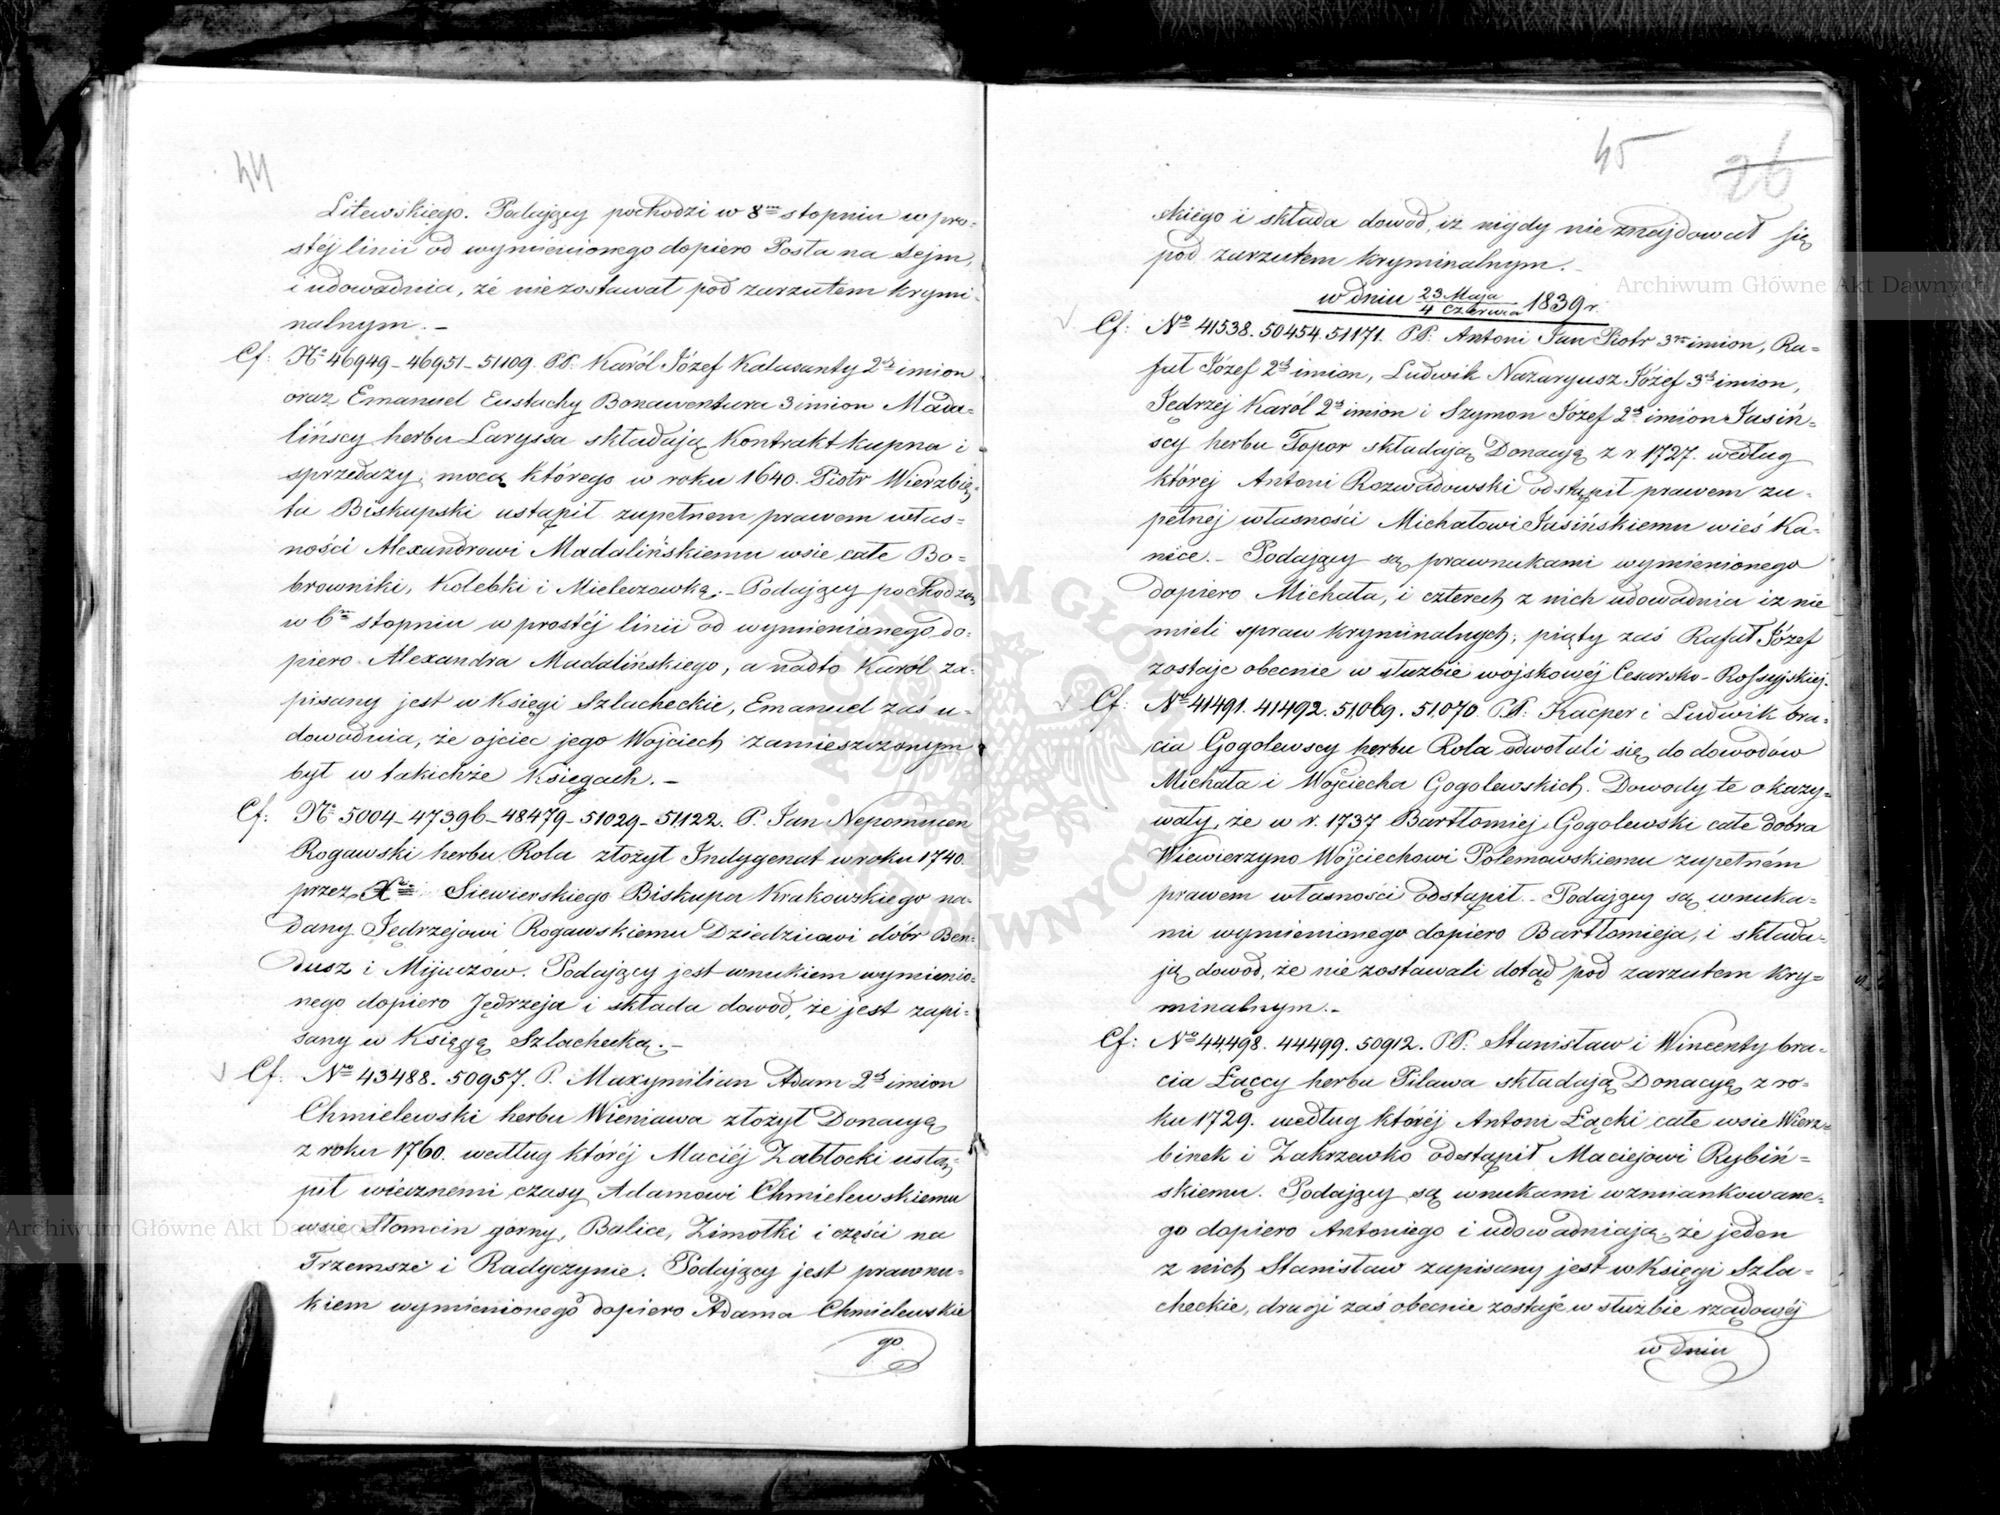 44
Litewskiego. Podający pochodzi w 8ᵐ stopniu w pro-
stéj linii od wymienionego dopiero Posła na Sejm,
i udowadnia, że niezostawał pod zarzutem krymi-
nalnym. –
Cf: Nº 46949 – 46951 – 51109. PP. Karól Józef Kalasanty 2ch imion
oraz Emanuel Eustachy Bonawentura 3 imion Mada-
lińscy herbu Laryssa składają Kontrakt kupna i
sprzedaży, mocą którego w roku 1640. Piotr Wierzbię-
ta Biskupski ustąpił zupełnem prawem włas-
ności Alexandrowi Madalińskiemu wsie całe Bo-
browniki, Kolebki i Mielczowką. – Podający pochodzą
w 6m stopniu w prostéj linii od wymienionego do-
piero Alexandra Madalińskiego, a nadto Karól za-
pisany jest w Księgi Szlacheckie, Emanuel zaś u-
dowadnia, że ojciec jego Wojciech zamieszczonym
był w takichże Księgach. –
Cf: Nº 5004 – 47396 – 48479 – 51029 – 51122. P. Jan Nepomucen
Rogawski herbu Rola złożył Indygenat w roku 1740.
przez Siewierskiego Biskupa Krakowskiego na-
dany Jędrzejowi Rogawskiemu Dziedzicowi dóbr Ben-
dusz i Mijaczów. Podający jest wnukiem wymienio-
nego dopiero Jędrzeja i składa dowód, że jest zapi-
sany w Księgę Szlachecką. –
Cf: Nº 43488. 50957. P. Maxymilian Adam 2ch imion
Chmielewski herbu Wieniawa złożył Donacyą
z roku 1760. według któréj Maciéj Zabłocki ustą-
pił wiecznemi czasy Adamowi Chmielewskiemu
wsie Słomcin górny, Balice, Zimotki i części na
Trzemsze i Radyczynie. Podający jest prawnu-
kiem wymienionego dopiero Adama Chmielewskie
go
45
26
skiego i składa dowód, iż nigdy nie znajdował się
pod zarzutem kryminalnym. –
w dniu 23 Maja / 4 Czerwca 1839 r.
Cf: Nº 41538. 50454. 51171. PP. Antoni Jan Piotr 3ch imion, Ra-
fał Józef 2ch imion, Ludwik Nazaryusz Józef 3ch imion,
Jędrzéj Karól 2ch imion i Szymon Józef 2ch imion Jasiń-
scy herbu Topor składają Donacyą z r. 1727. według
któréj Antoni Rozwadowski odstąpił prawem zu-
pełnéj własności Michałowi Jasińskiemu wieś Ka-
nice. – Podający są prawnukami wymienionego
dopiero Michała, i czterech z nich udowadnia iż nie
mieli spraw kryminalnych; piąty zaś Rafał Józef
zostaje obecnie w służbie wojskowéj Cesarsko-Rossyjskiej.
Cf. Nº 41491. 41492. 51,069. 51,070. PP. Kacper i Ludwik bra-
cia Gogolewscy herbu Rola odwołali się do dowodów
Michała i Wojciecha Gogolewskich. Dowody te okazy-
wały, że w r. 1737 Bartłomiej Gogolewski całe dobra
Wiewierzyno Wojciechowi Polemowskiemu zupełném
prawem własności odstąpił. – Podający są wnuka-
mi wymienionego dopiero Bartłomieja, i składa-
ją dowód, że nie zostawali dotąd pod zarzutem kry-
minalnym. –
Cf: Nº 44498. 44499. 50912. PP. Stanisław i Wincenty bra-
cia Łąccy herbu Pilawa składają Donacyę z ro-
ku 1729. według któréj Antoni Łącki całe wsie Wierz-
binek i Zakrzewko odstąpił Maciejowi Rybiń-
skiemu. Podający są wnukami wzmiankowane-
go dopiero Antoniego i udowadniają, że jeden
z nich Stanisław zapisany jest w Księgi Szla-
checkie, drugi zaś obecnie zostaje w służbie rządowéj
w dniu
ARCHIWUM GŁÓWNE AKT DAWNYCH
Archiwum Główne Akt Dawnych
Archiwum Główne Akt Dawnych